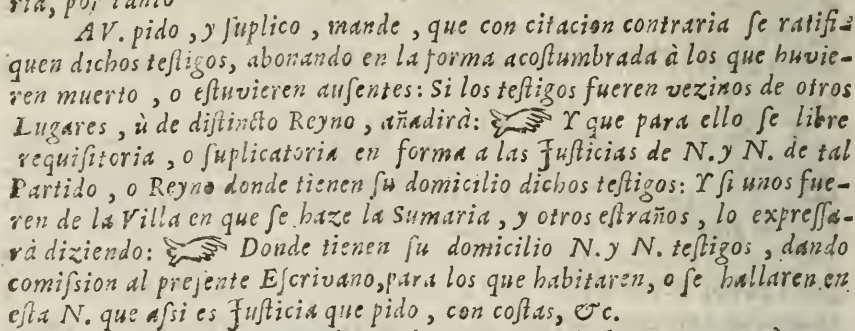 ria, por tanto
AV. pido, y ſuplico, mande, que con citacion contraria ſe ratifi-
quen dichos teſtigos, abonando en la forma acoſtumbrada à los que huvie-
ren muerto, o eſtuvieren auſentes: Si los teſtigos fueren vezinos de otros
Lugares, ù de diſtincto Reyno, añadirà: ☞ Y que para ello ſe libre
requiſitoria, o ſuplicatoria en forma a las Juſticias de N. y N. de tal
Partido, o Reyno donde tienen ſu domicilio dichos teſtigos: Y ſi unos fue-
ren de la Villa en que ſe haze la Sumaria, y otros eſtraños, lo expreſſa-
rà diziendo: ☞ Donde tienen ſu domicilio N. y N. teſtigos, dando
comiſsion al preſente Eſcrivano, para los que habitaren, o ſe hallaren en
eſta N. que aſsi es Juſticia que pido, con coſtas, &c.